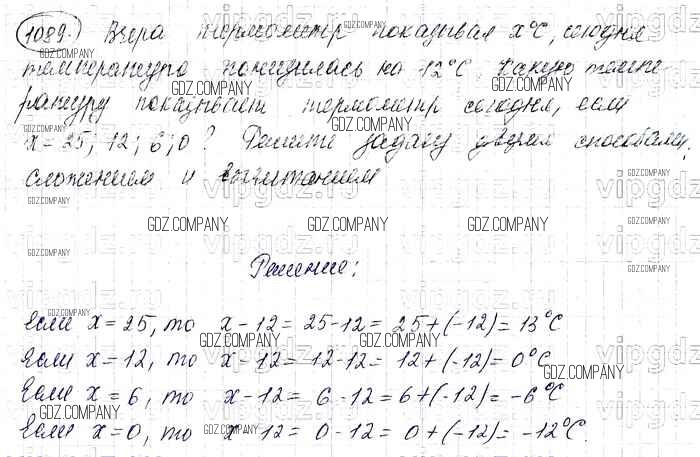 1089. Вчера термометр показывал x°C, сегодня
температура понизилась на 12°C. Какую темпе
ратуру показывает термометр сегодня, если
x = 25; 12; 6; 0? Решите задачу двумя способами:
сложением и вычитанием
Решение:
Если x = 25, то x - 12 = 25 - 12 = 25 + (-12) = 13°C
Если x = 12, то x - 12 = 12 - 12 = 12 + (-12) = 0°C
Если x = 6, то x - 12 = 6 - 12 = 6 + (-12) = -6°C
Если x = 0, то x - 12 = 0 - 12 = 0 + (-12) = -12°C.
GDZ.COMPANY
vipgdz.ru